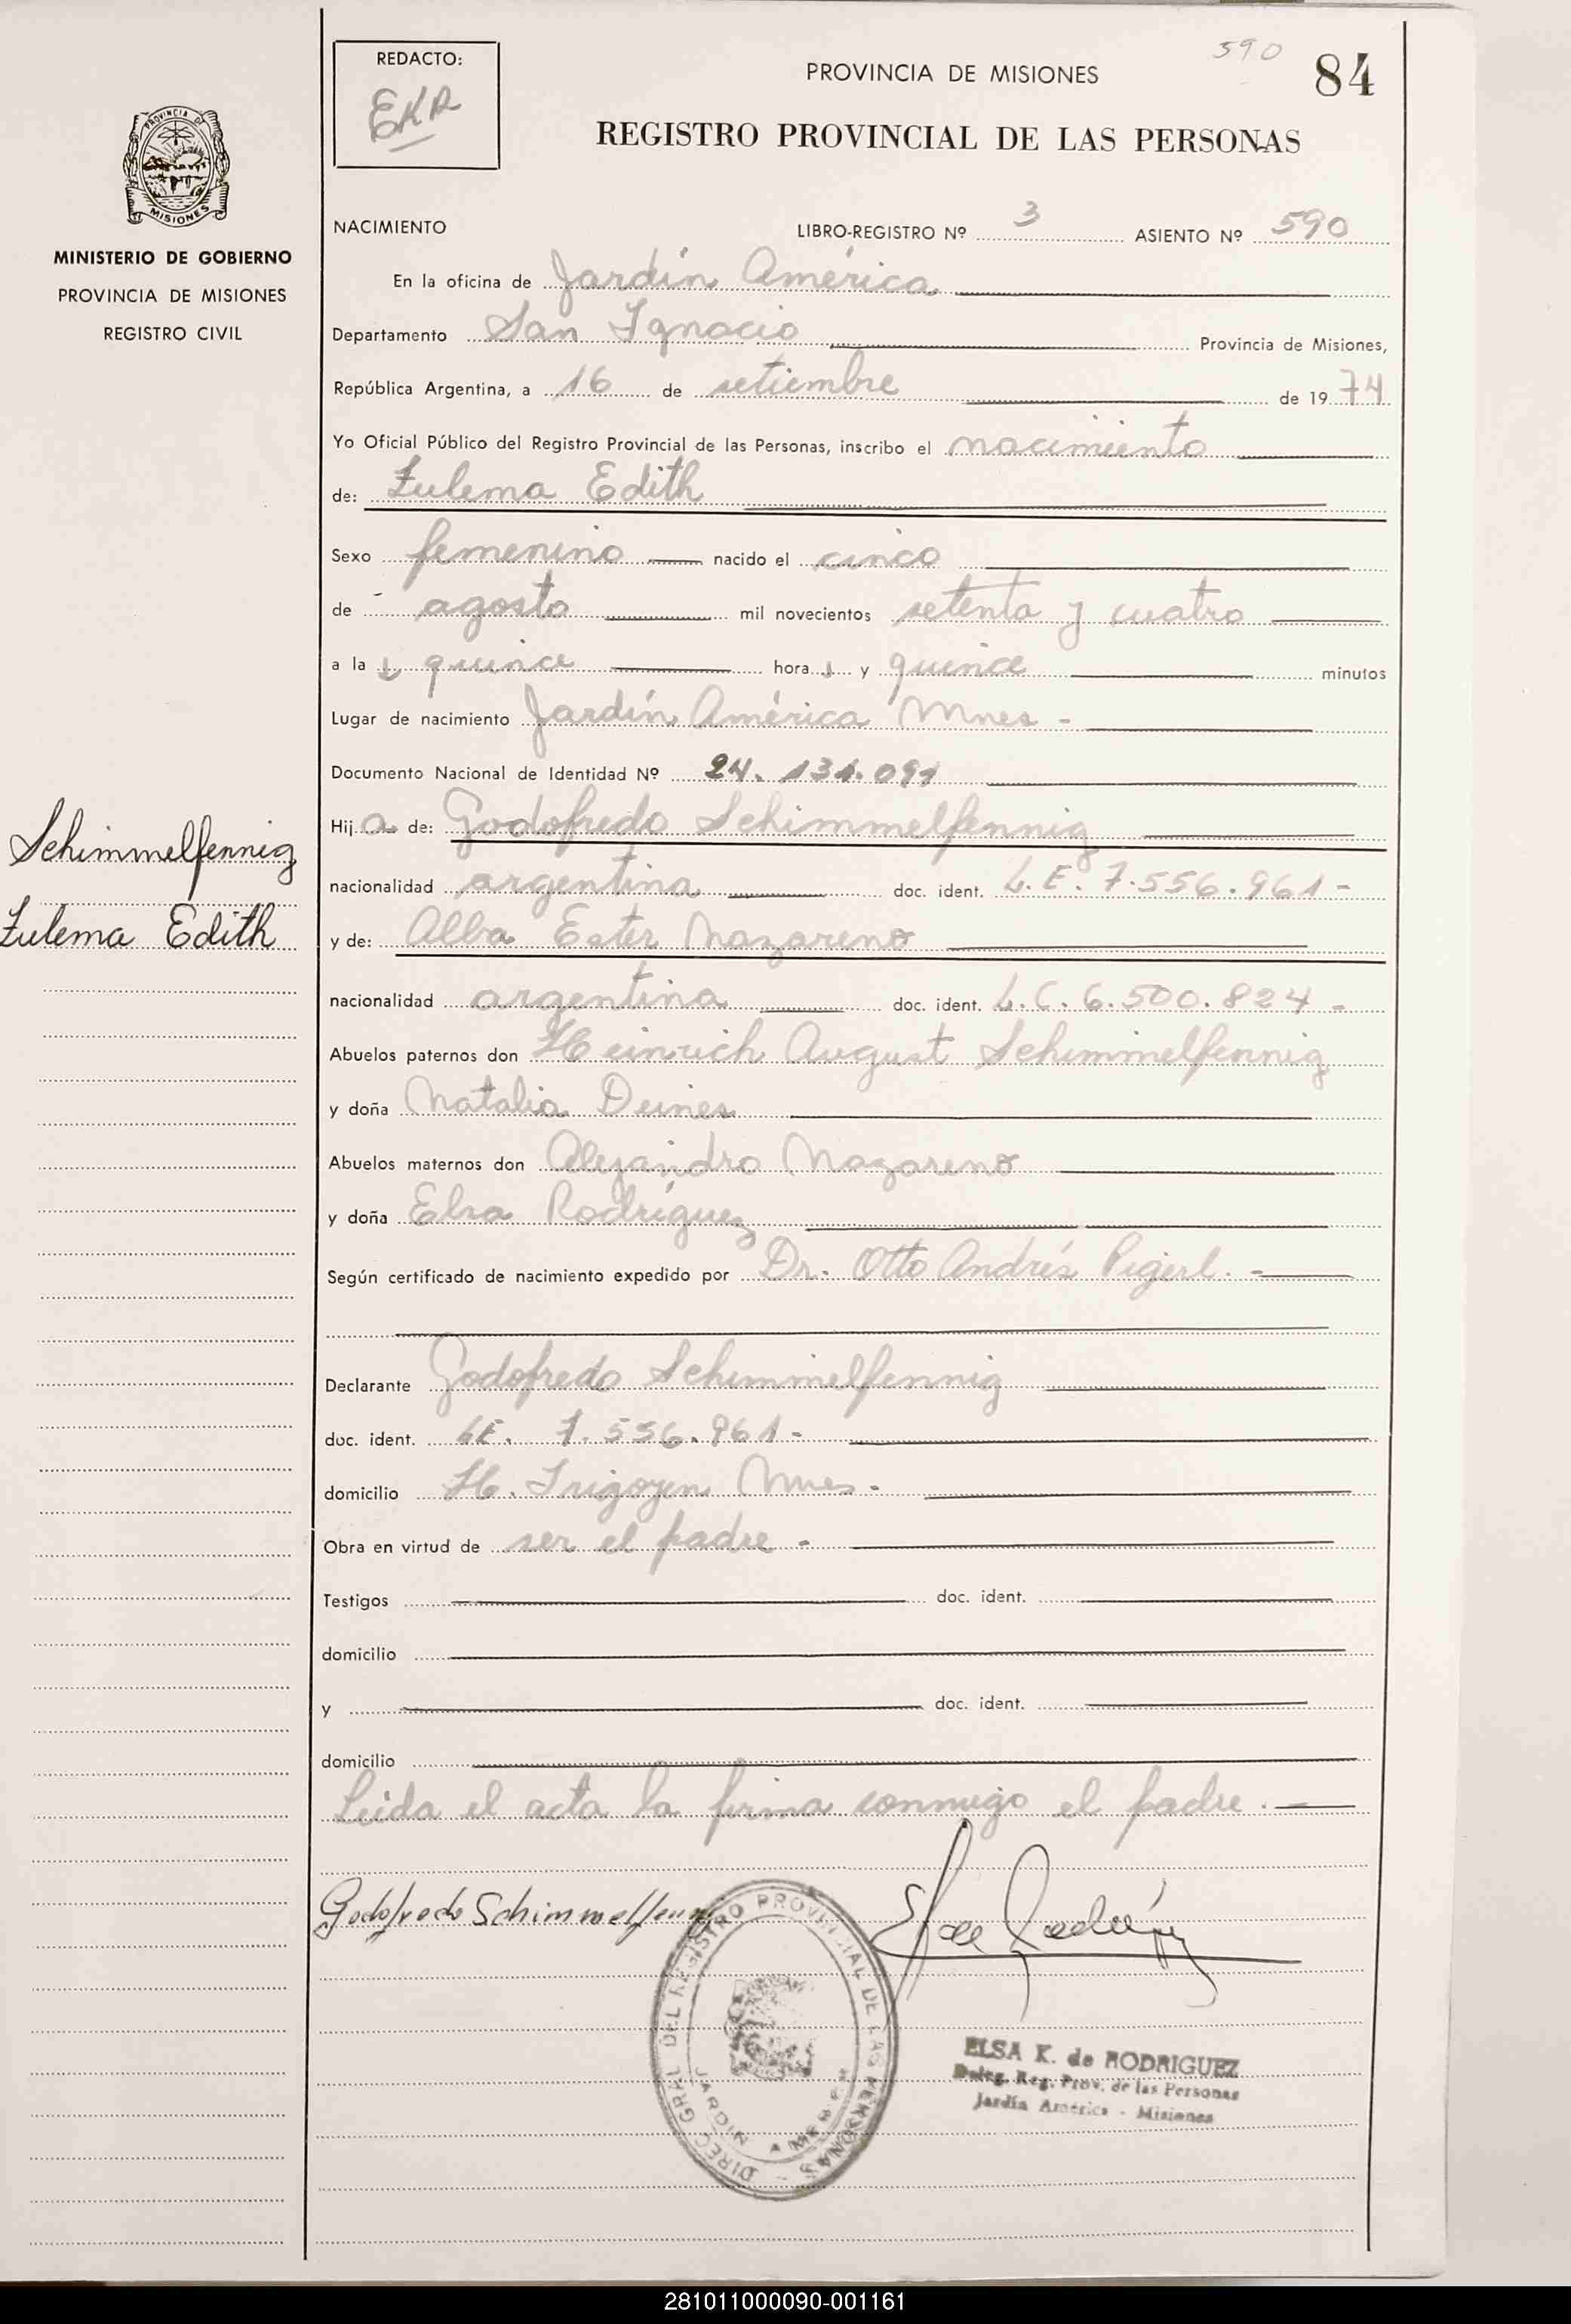 590
84
REDACTO:
EKR
PROVINCIA DE MISIONES
REGISTRO PROVINCIAL DE LAS PERSONAS
PROVINCIA DE
MISIONES
MINISTERIO DE GOBIERNO
PROVINCIA DE MISIONES
REGISTRO CIVIL
NACIMIENTO LIBRO-REGISTRO Nº 3 ASIENTO Nº 590
En la oficina de Jardín América
Departamento San Ignacio Provincia de Misiones,
República Argentina, a 16 de setiembre de 1974
Yo Oficial Público del Registro Provincial de las Personas, inscribo el nacimiento
de: Zulema Edith
Sexo femenino nacido el cinco
de agosto mil novecientos setenta y cuatro
a las quince horas y quince minutos
Lugar de nacimiento Jardín América Mnes -
Documento Nacional de Identidad Nº 24.131.091
Hija de: Godofredo Schimmelfennig
nacionalidad argentina doc. ident. L.E. 7.556.961-
y de: Alba Ester Nazareno
nacionalidad argentina doc. ident. L.C. 6.500.824-
Abuelos paternos don Heinrich August Schimmelfennig
y doña Natalia Deines
Abuelos maternos don Alejandro Nazareno
y doña Elsa Rodríguez
Según certificado de nacimiento expedido por Dr. Otto Andrés Pigerl.-
Declarante Godofredo Schimmelfennig
doc. ident. LE. 7.556.961-
domicilio H. Irigoyen Mnes-
Obra en virtud de ser el padre-
Testigos doc. ident.
domicilio
y doc. ident.
domicilio
Leida el acta la firma conmigo el padre.-
Schimmelfennig
Zulema Edith
Godofredo Schimmelfennig
DIREC. GRAL. DEL REGISTRO PROVINCIAL DE LAS PERSONAS -
JARDIN AMERICA
ELSA K. de RODRIGUEZ
Deleg. Reg. Prov. de las Personas
Jardín América - Misiones
281011000090-001161